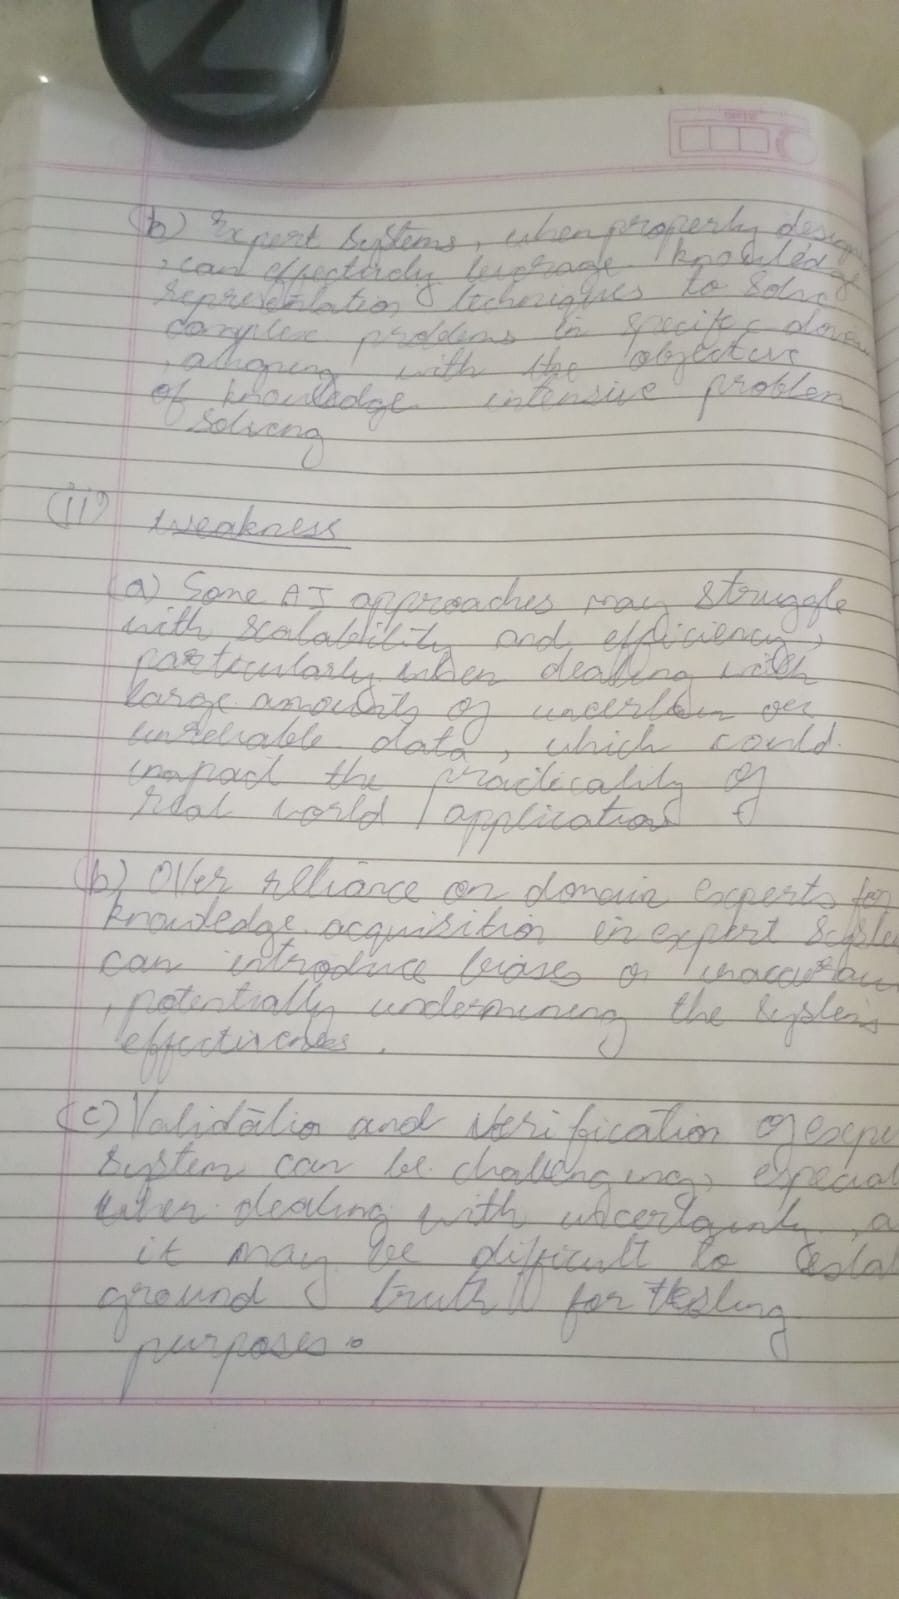 DATE
(b) Expert Systems, when properly design
, can effectively leverage knowledge
representation techniques to solve
complex problems in specific domai
, aligning with the objective
of knowledge intensive problem
solving
(ii) Weakness
(a) Some AI approaches may struggle
with scalability and efficiency,
particularly when dealing with
large amounts of uncertain or
unreliable data, which could
impact the practicality of
real world application
(b) Over reliance on domain experts for
knowledge acquisition in expert Syste
can introduce biases or inaccurac
, potentially undermining the system's
effectiveness.
(c) Validatio and verification of expe
system can be challenging, especial
when dealing with uncertainty, a
it may be difficult to establ
ground truth for testing
purposes.